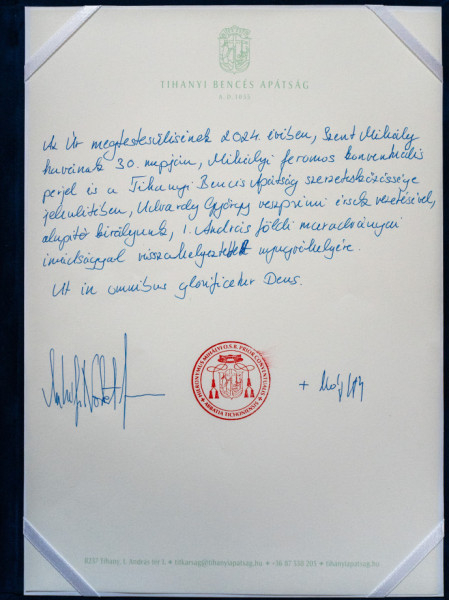 TIHANYI BENCÉS APÁTSÁG
A.D. 1055
Az Úr megtestesülésének 2024. évében, Szent Mihály
havának 30. napján, Mihályi Jeromos konventuális
perjel és a Tihanyi Bencés Apátság szerzetesközössége
jelenlétében, Udvardy György veszprémi érsek vezetésével,
alapító királyunk, I. András földi maradványai
imádsággal visszahelyeztettek nyugvóhelyére.
Ut in omnibus glorificetur Deus.
HIERONYMUS MIHÁLYI O.S.B. PRIOR CONVENTUALIS
ABBATIA TICHONIENSIS
8237 Tihany, I. András tér 1. • titkarsag@tihanyiapatsag.hu • +36 87 538 201 • tihanyiapatsag.hu